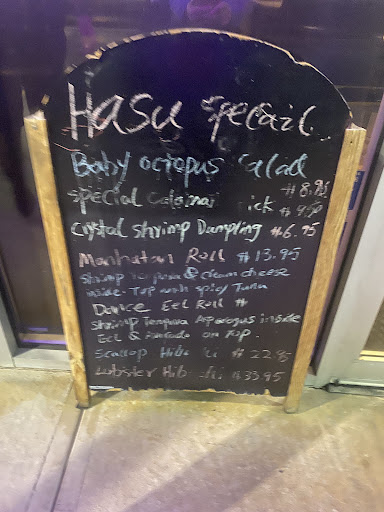 Hasu specail
Baby octopus salad
$8.95
special calamari ick $4.50
Crystal shrimp Dumpling $6.95
Manhatan Roll $13.95
shrimp tempura & cream cheese
inside. Top with spicy Tuna
Dance Eel Roll $
Shrimp Tempura Asparagus inside
Eel & Avocado on top.
Scallop Hiba hi $22.95
Lobster Hib chi $33.95